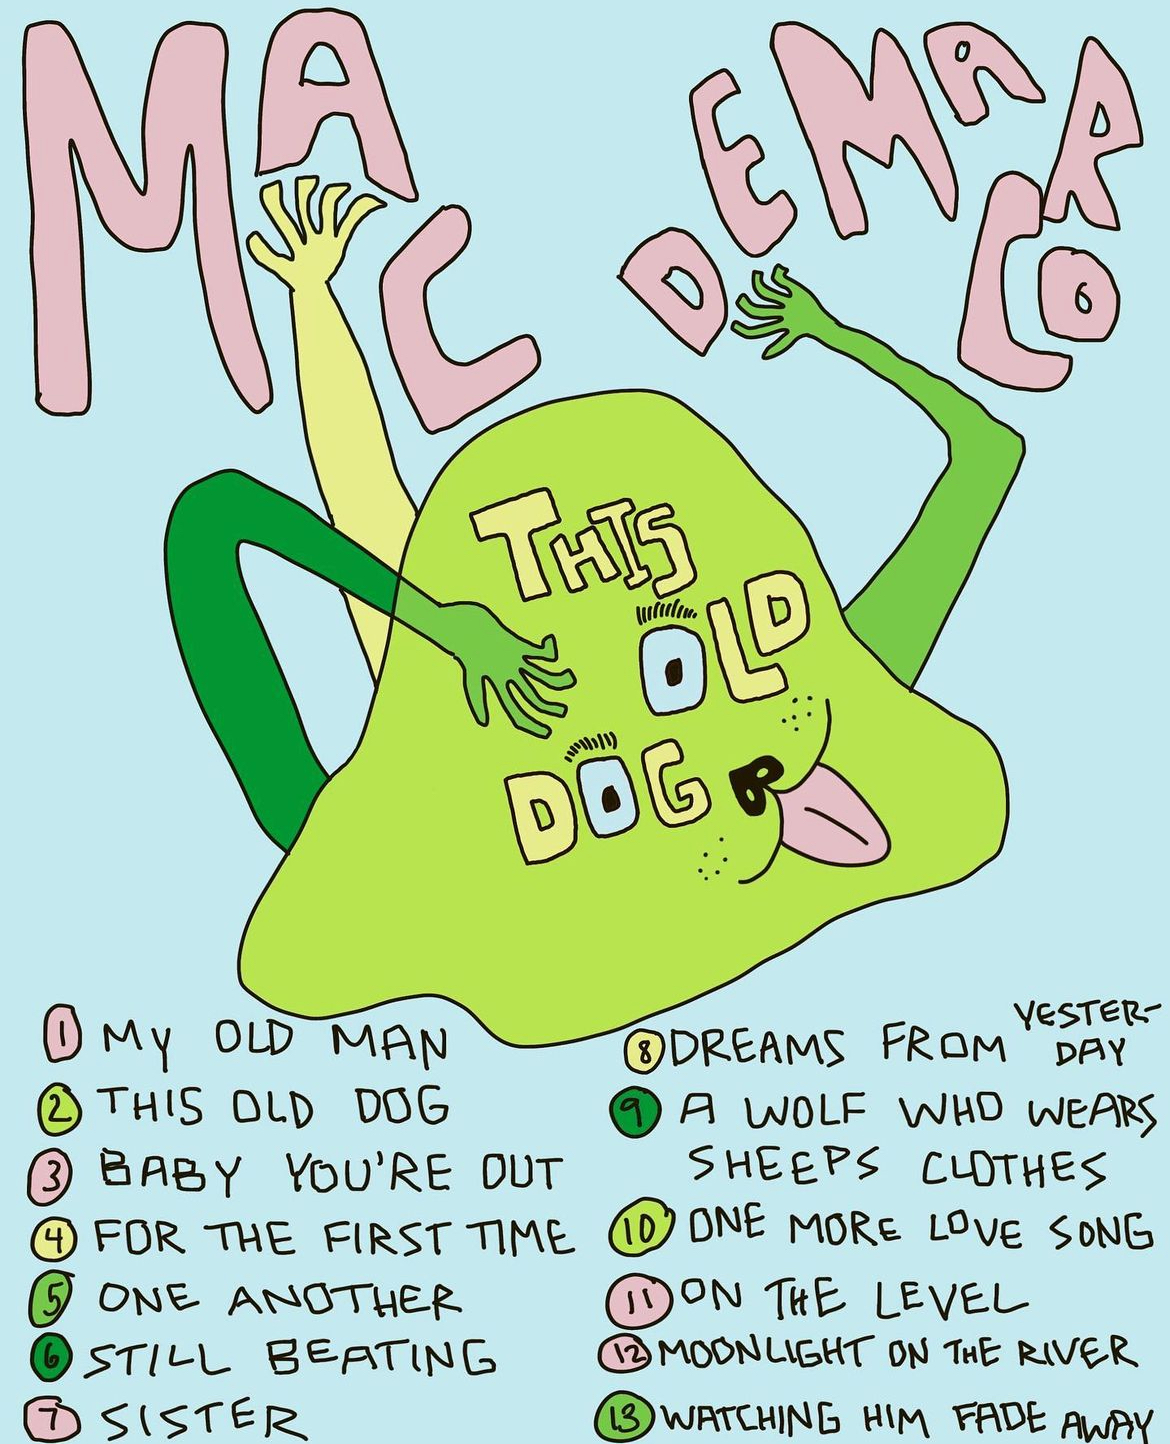 MAC
DEMARCO
THIS
OLD
DOG
1 MY OLD MAN
2 THIS OLD DOG
3 BABY YOU'RE OUT
4 FOR THE FIRST TIME
5 ONE ANOTHER
6 STILL BEATING
7 SISTER
8 DREAMS FROM YESTER-
DAY
9 A WOLF WHO WEARS
SHEEPS CLOTHES
10 ONE MORE LOVE SONG
11 ON THE LEVEL
12 MOONLIGHT ON THE RIVER
13 WATCHING HIM FADE AWAY